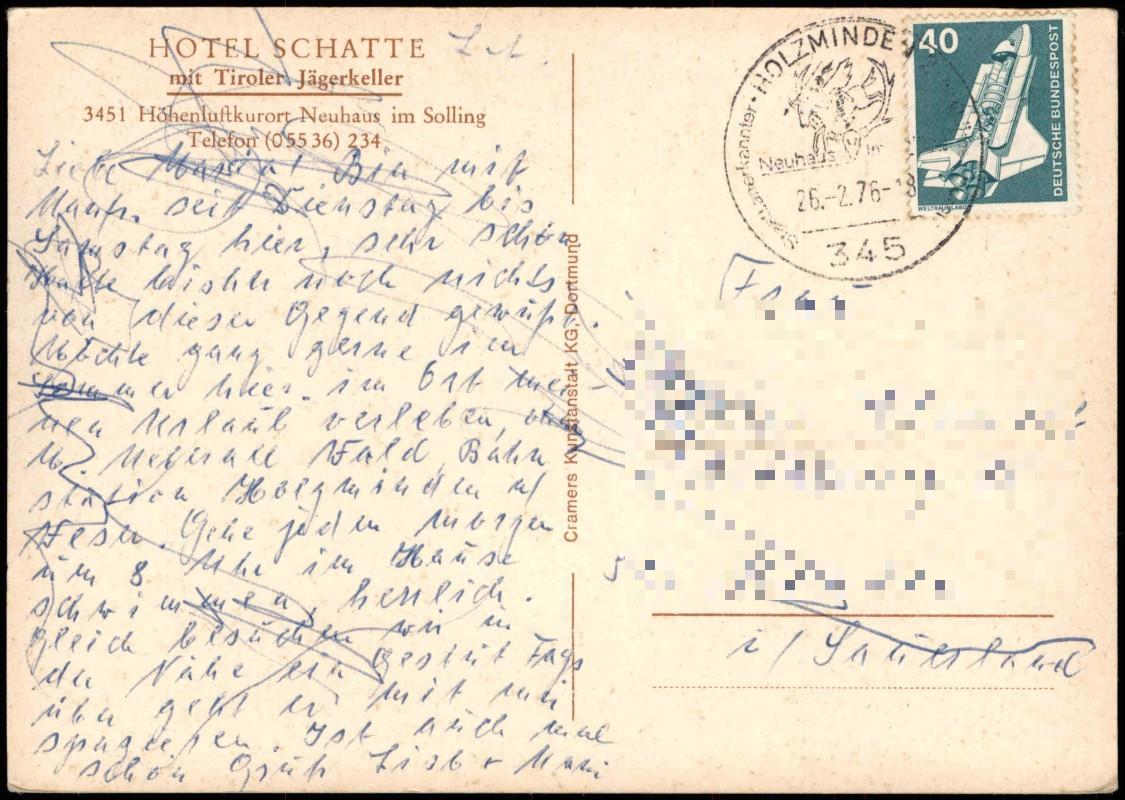 HOTEL SCHATTE
mit Tiroler Jägerkeller
3451 Höhenluftkurort Neuhaus im Solling
Telefon (05536) 234
Liebe Bin mit
seit Dienstag bis
Samstag hier, sehr schön
Hatte bisher noch nichts
von dieser Gegend gewußt.
Möchte ganz gerne im
Sommer hier im Ort mei-
nen Urlaub verleben,
Wald, Bahn
station Holzminden
Weser. Gehe jeden morgen
um 8 Uhr im Hause
schwimmen, herrlich.
Gleich besuchen wir in
der Nähe ein Gestüt Tags
über geht er mit mir
spazieren. Ist auch mal
schön Gruß
Cramers Kunstanstalt KG, Dortmund
HOLZMINDEN
Neuhaus im
26.-2.76-18
345
40
DEUTSCHE BUNDESPOST
WELTRAUMLABOR
Frau
5
i/Sauerland